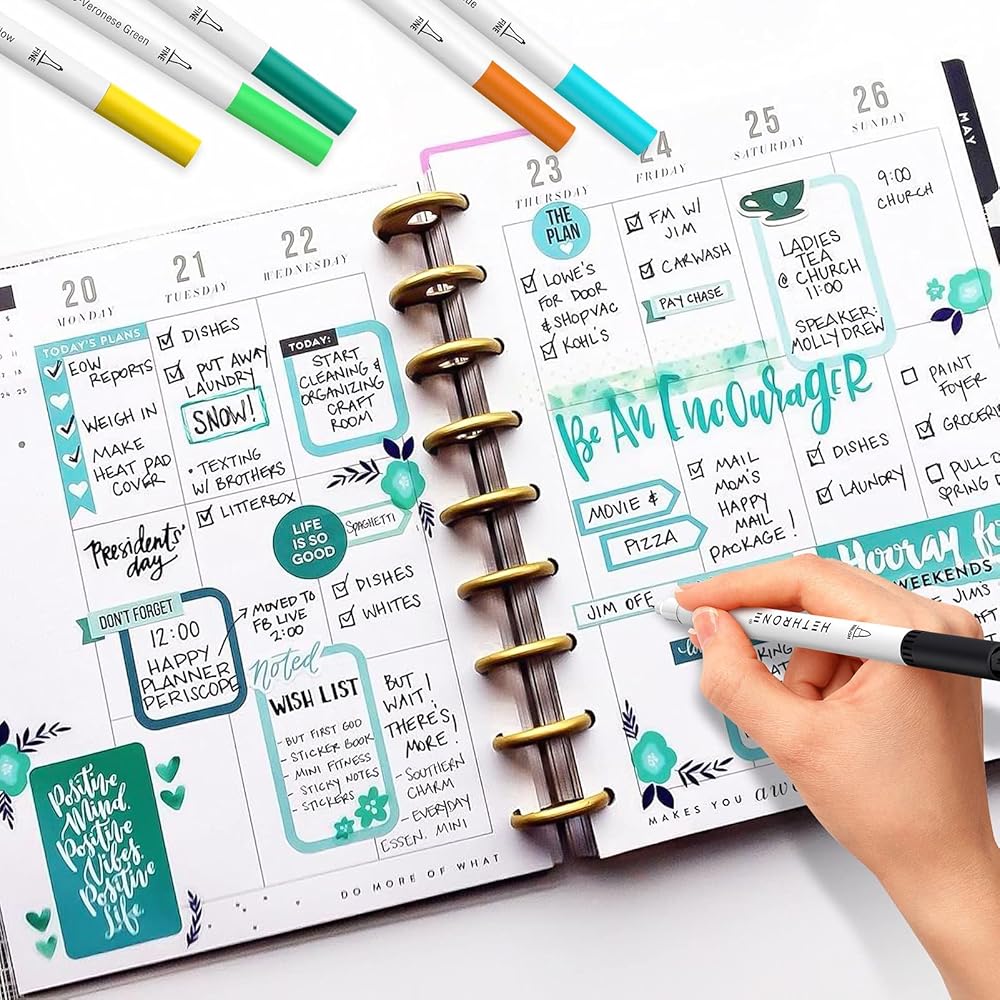 FINE
Veronese Green
FINE
FINE
FINE
FINE
20
MONDAY
TODAY'S PLANS
EOW
REPORTS
WEIGH IN
MAKE
HEAT PAD
COVER
Presidents'
day
DON'T FORGET
12:00
HAPPY
PLANNER
PERISCOPE
Positive
Mind.
Positive
Vibes.
Positive
Life
21
TUESDAY
DISHES
PUT AWAY
LAUNDRY
SNOW!
• TEXTING
W/ BROTHERS
LITTERBOX
MOVED TO
FB LIVE
2:00
22
WEDNESDAY
TODAY:
START
CLEANING &
ORGANIZING
CRAFT
ROOM
LIFE
IS SO
GOOD
SPAGHETTI
DISHES
WHITES
Noted
WISH LIST
- BUT FIRST GOD
STICKER BOOK
- MINI FITNESS
- STICKY NOTES
- STICKERS
BUT
WAIT!
THERE'S
MORE!
- SOUTHERN
CHARM
- EVERYDAY
ESSEN. MINI
DO MORE OF WHAT
23
THURSDAY
THE
PLAN
LOWE'S
FOR DOOR
& SHOPVAC
KOHL'S
Be An Encourager
MOVIE &
PIZZA
JIM OFF
24
FRIDAY
FM W/
JIM
CARWASH
PAY CHASE
MAIL
MOM'S
HAPPY
MAIL
PACKAGE!
25
SATURDAY
LADIES
TEA
@ CHURCH
11:00
SPEAKER:
MOLLY DREW
DISHES
LAUNDRY
26
SUNDAY
9:00
CHURCH
PAINT
FOYER
GROCERI
PULL O
SPRING D
Hooray fo
WEEKENDS
JIMS
MAKES YOU
MAY
HETHRONE®
BRUSH